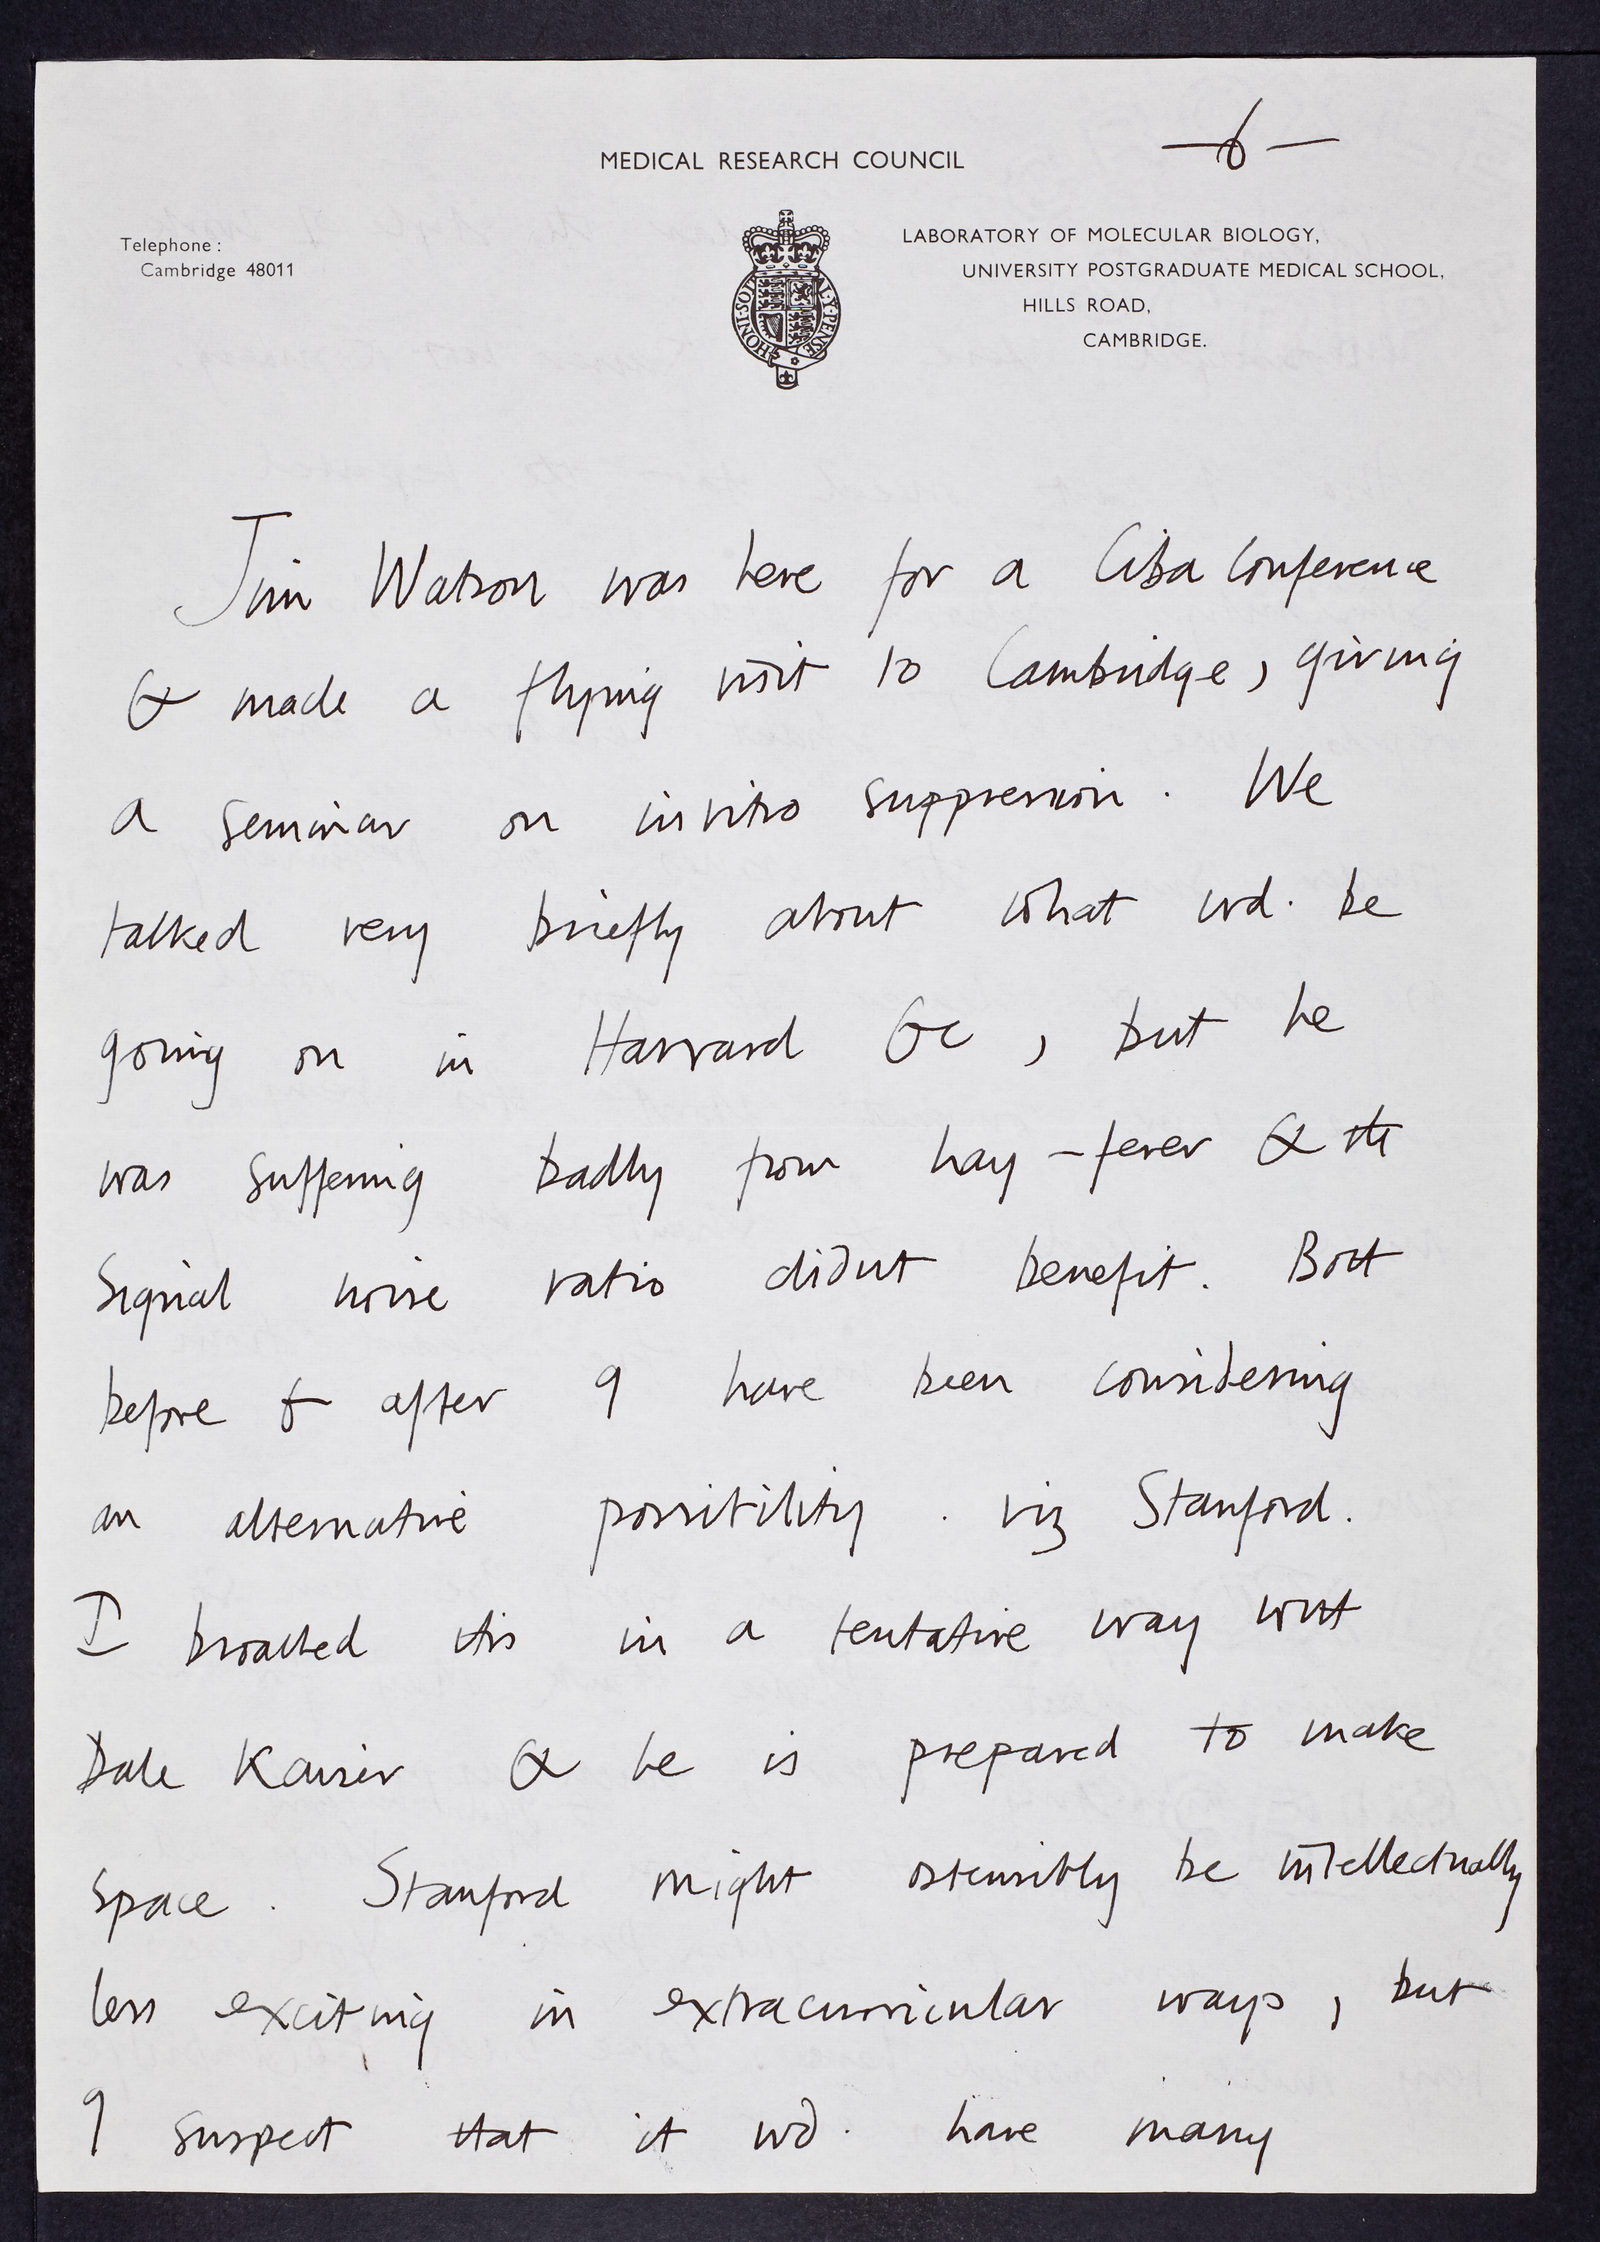 -6-
MEDICAL RESEARCH COUNCIL
Telephone :
Cambridge 48011
HONI·SOI
·Y·PENSE
LABORATORY OF MOLECULAR BIOLOGY,
UNIVERSITY POSTGRADUATE MEDICAL SCHOOL,
HILLS ROAD,
CAMBRIDGE.
Jim Watson was here for a Ciba Conference
& made a flying visit to Cambridge, giving
a seminar on in vitro suppression. We
talked very briefly about what wd. be
going on in Harvard &c, but he
was suffering badly from hay-fever & the
signal noise ratio didnt benefit. Both
before & after I have been considering
an alternative possibility. viz Stanford.
I broached this in a tentative way with
Dale Kaiser & he is prepared to make
space. Stanford might ostensibly be intellectually
less exciting in extracurricular ways, but
I suspect that it wd. have many